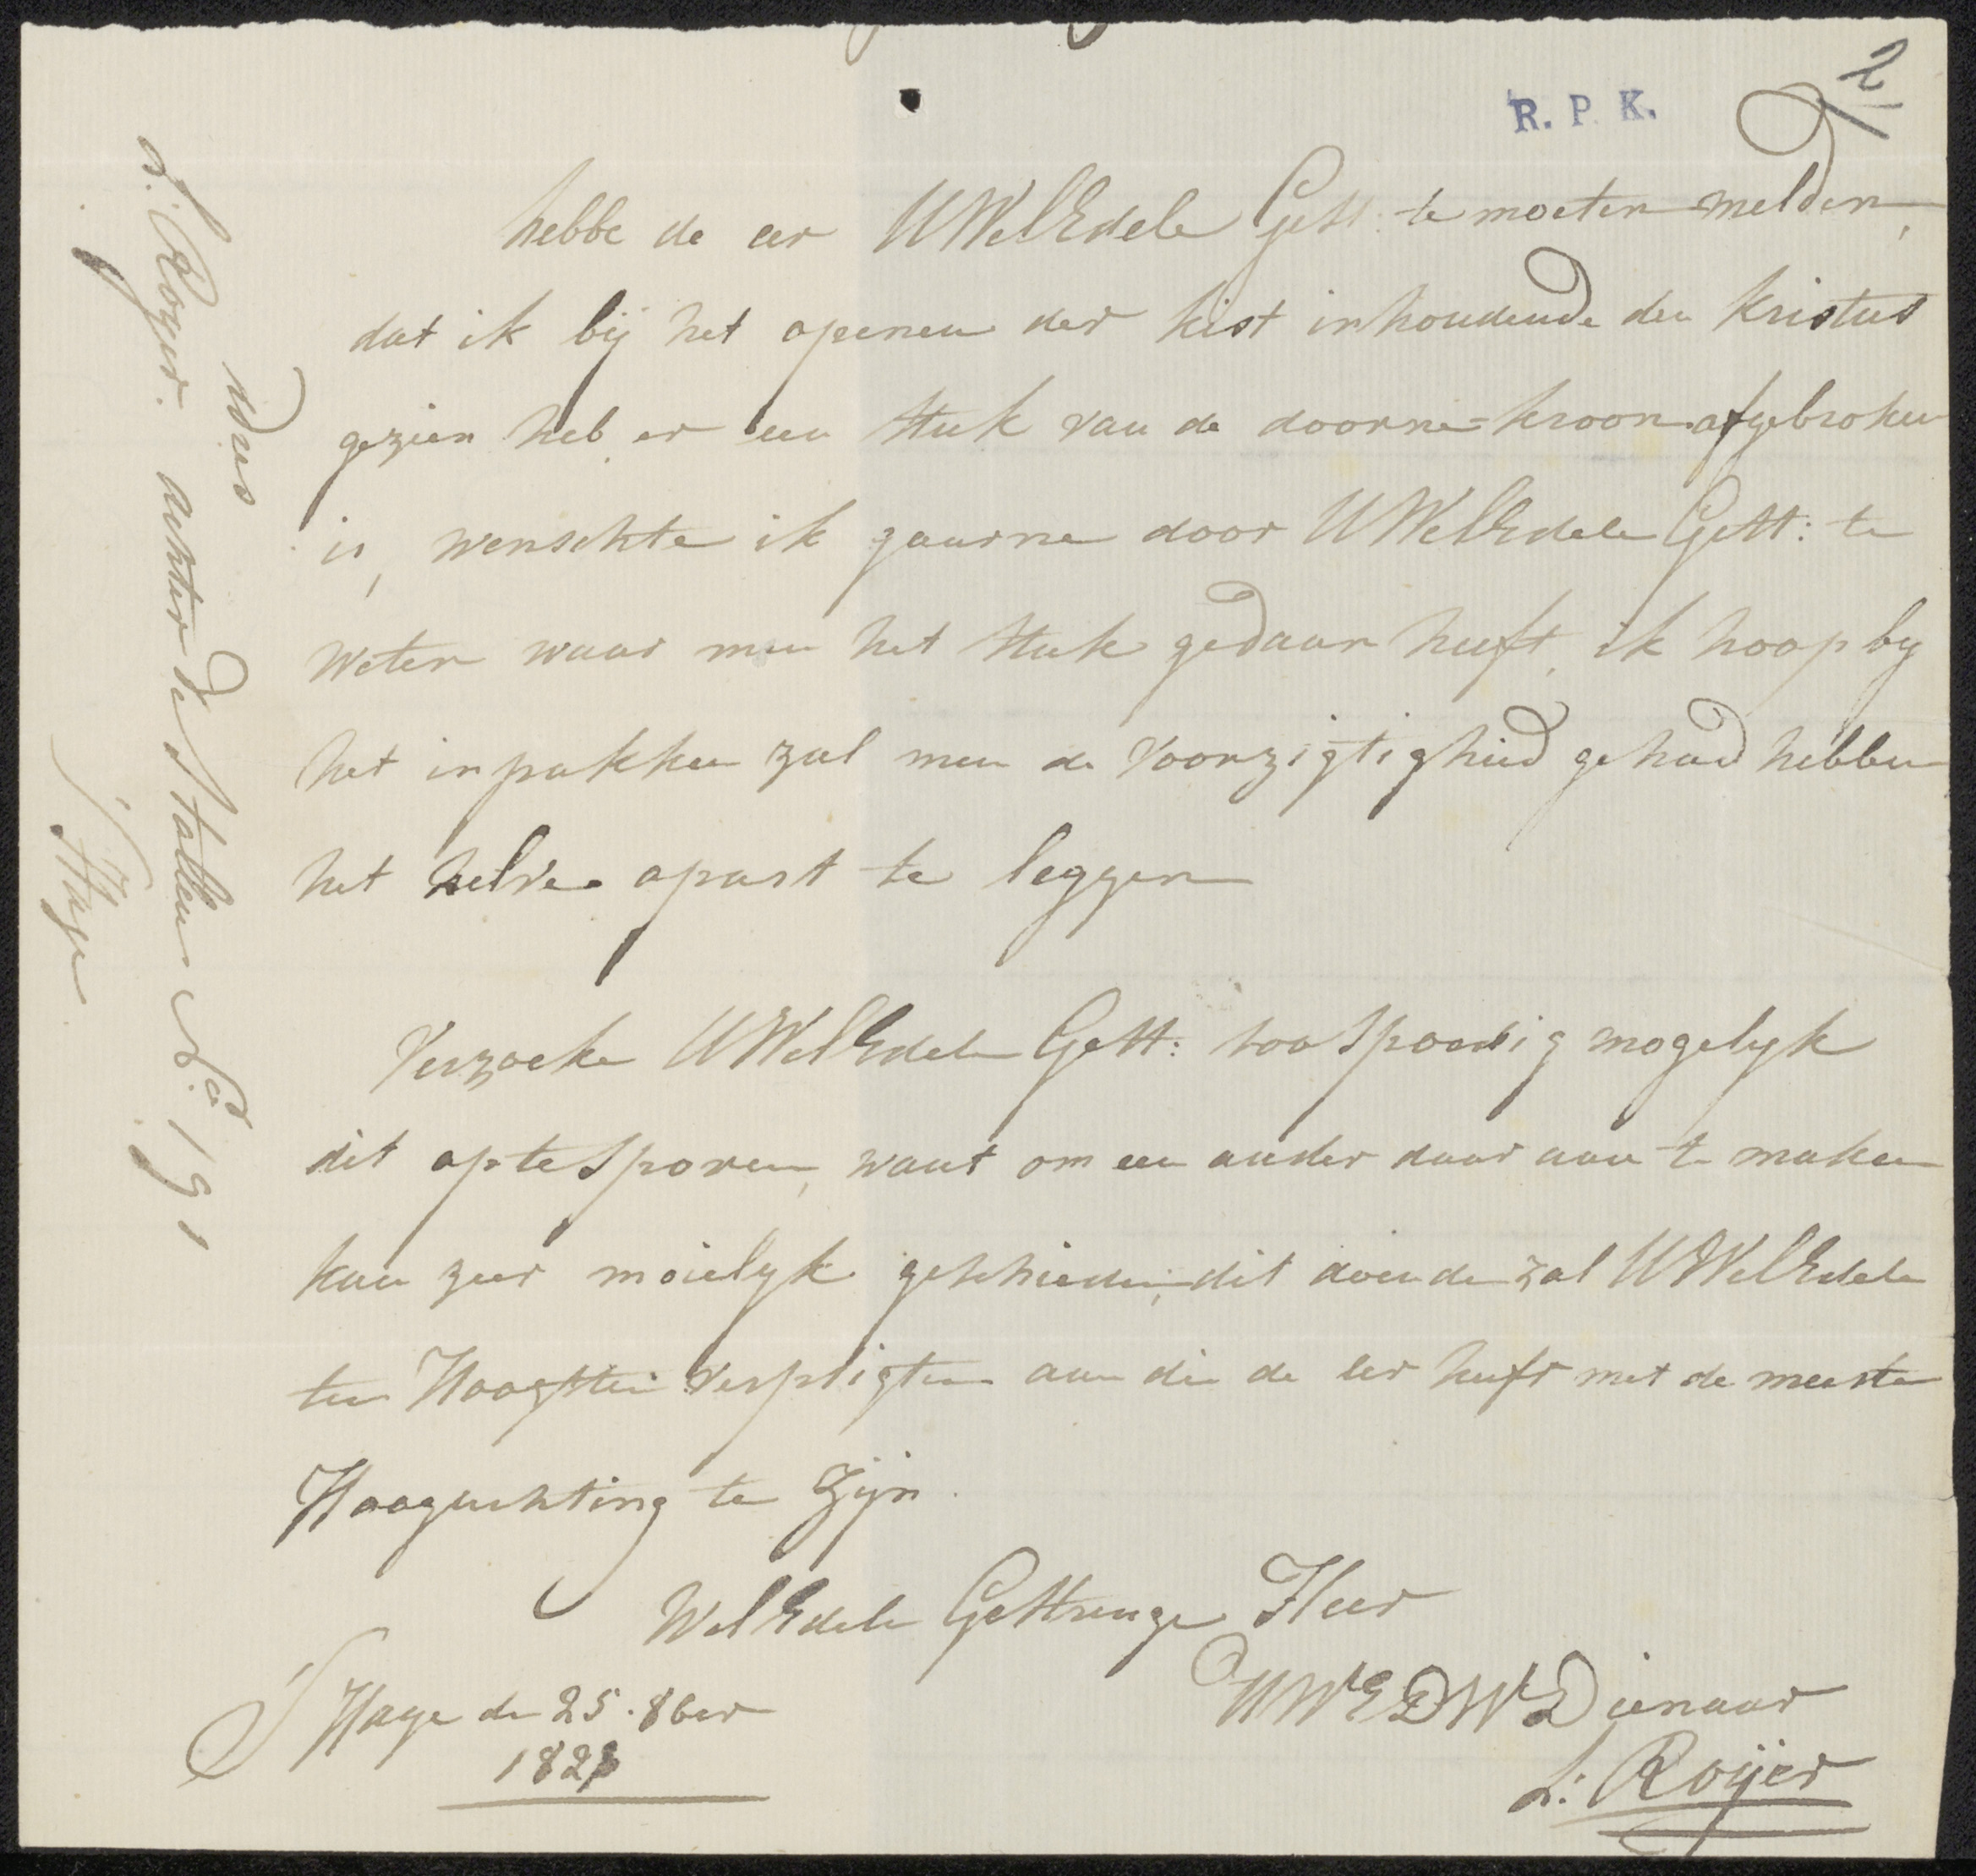 2
R. P. K.
hebbe de eer UWelEdele Gestr: te moeten melden,
dat ik bij het openen der kist inhoudende den Kristus
gezien heb er een stuk van de doorne=kroon afgebroken
is, wenschte ik gaarne door UWelEdele Gestr: te
weten waar men het stuk gedaan heeft, ik hoop by
het inpakken zal men de voorzigtigheid gehad hebben
het zelve apart te leggen
Verzoeke UWelEdele Gestr: soo spoedig mogelyk
dit optesporen, want om een ander daar aan te maken
kan zeer moielyk geschieden, dit doende zal UWelEdele
ten Hoogsten verpligten aan die de eer heeft met de meeste
Hoogachting te zijn.
WelEdele Gestrenge Heer
UWEDW Dienaar
L: Roijer
S'Hage den 25. 8ber
182
adres
L. Royer. achter de Stallen No. 191
S'Hage